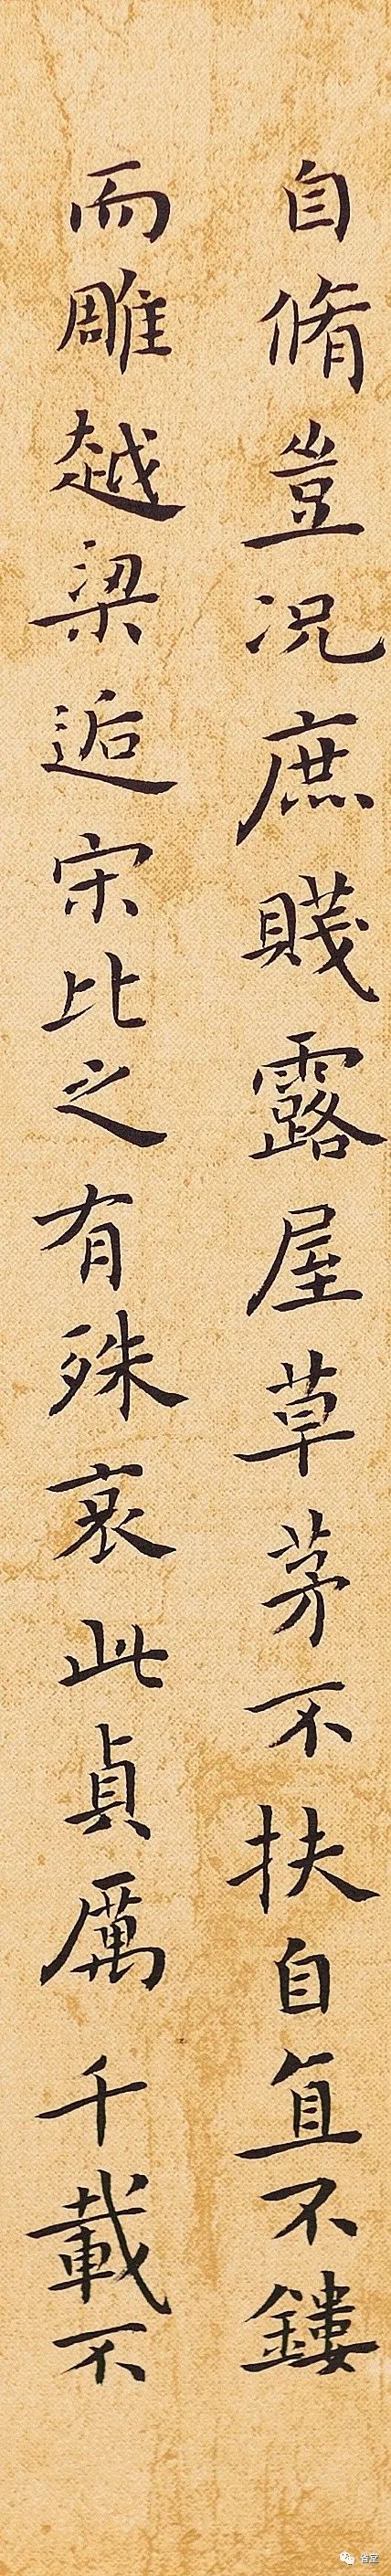 自脩豈况庶賤露屋草茅不扶自直不鏤
而雕越梁逅宋比之有殊哀此貞厲千載不